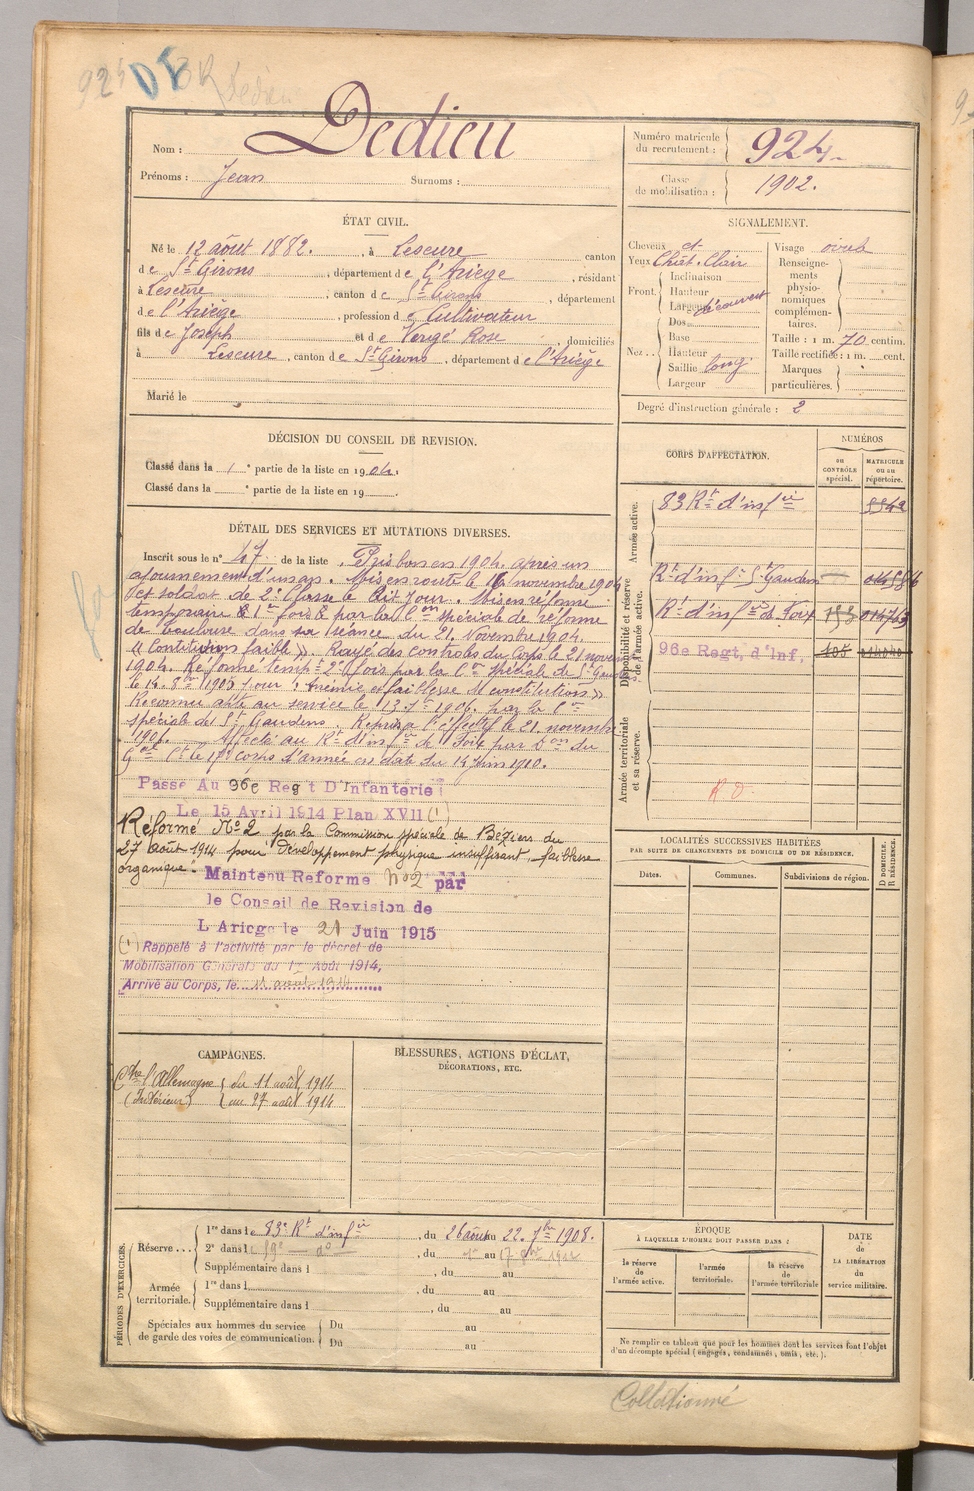 924
Nom : Dedieu
Prénoms : Jean Surnoms :
Numéro matricule du recrutement : 924.
Classe de mobilisation : 1902.
ÉTAT CIVIL.
Né le 12 août 1882. , à Lescure canton
de St Girons , département de l'Ariège , résidant
à Lescure , canton de St Girons , département
de l'Ariège , profession de Cultivateur
fils de Joseph et de Vergé Rose , domiciliés
à Lescure , canton de St Girons , département de l'Ariège
Marié le
SIGNALEMENT.
Cheveux et
Yeux Chât. Clair
Front. Inclinaison
Hauteur
Largeur découvert
Nez Dos
Base
Hauteur
Saillie long
Largeur
Visage ovale
Renseignements physionomiques complémentaires.
Taille : 1 m. 70 centim.
Taille rectifiée : 1 m. cent.
Marques particulières.
Degré d'instruction générale : 2
DÉCISION DU CONSEIL DE REVISION.
Classé dans la 1 e partie de la liste en 1904.
Classé dans la e partie de la liste en 19 .
CORPS D'AFFECTATION.
NUMÉROS
au CONTRÔLE spécial.
MATRICULE ou au répertoire.
Armée active.
83 Rt d'infie
Disponibilité et réserve de l'armée active.
Rt d'inf. St Gaudens
Rt d'infie de Foix
96e Regt, d'Inf,
Armée territoriale et sa réserve.
DÉTAIL DES SERVICES ET MUTATIONS DIVERSES.
Inscrit sous le n° 47 de la liste . Pris bon en 1904. après un
ajournement d'un an. Mis en route le 16 novembre 1904
et soldat de 2e Classe le dit Jour. Mis en réforme
temporaire 1re fois par la Con spéciale de réforme
de Toulouse dans sa séance du 21. Novembre 1904.
« Constitution faible ». Rayé des controles du Corps le 21 novembre
1904. Réformé tempre 2e fois par la Con spéciale de St Gaudens
le 14. 8bre 1905 pour « Anémie et faiblesse de constitution »
Reconnu apte au service le 1906. par la Con
spéciale de St Gaudens. Repris à l'effectif le 21. novembre
1906. Affecté au Rt d'infie de Foix par Don du
Gal Ct le 17e corps d'armée en date du 14 Juin 1910.
Passé Au 96e Regt D'Infanterie
Le 15 Avril 1914 Plan XVII (1)
Réformé N° 2 par la Commission spéciale de Béziers du
27 août 1914 pour développement physique insuffisant, faiblesse
organique.
Maintenu Reforme n°2 par
le Conseil de Revision de
L'Ariege le 21 Juin 1915
(1) Rappelé à l'activité par le décret de
Mobilisation Générale du 1er Août 1914,
Arrivé au Corps, le 11 août 1914
LOCALITÉS SUCCESSIVES HABITÉES
PAR SUITE DE CHANGEMENTS DE DOMICILE OU DE RÉSIDENCE.
Dates. Communes. Subdivisions de région. D DOMICILE. R RÉSIDENCE.
CAMPAGNES.
Ctre l'Allemagne du 11 août 1914
(Intérieur) au 27 août 1914
BLESSURES, ACTIONS D'ÉCLAT,
DÉCORATIONS, ETC.
PÉRIODES D'EXERCICES.
Réserve 1re dans le 83e Rt d'infie , du 26 août au 22. 7bre 1908.
2e dans l , du au
Supplémentaire dans l , du au
Armée territoriale. 1re dans l , du au
Supplémentaire dans l , du au
Spéciales aux hommes du service Du au
de garde des voies de communication. Du au
ÉPOQUE
À LAQUELLE L'HOMME DOIT PASSER DANS :
la réserve de l'armée active.
l'armée territoriale.
la réserve de l'armée territoriale
DATE de LA LIBÉRATION du service militaire.
Ne remplir ce tableau que pour les hommes dont les services font l'objet
d'un décompte spécial (engagés, condamnés, omis, etc.).
Collationné